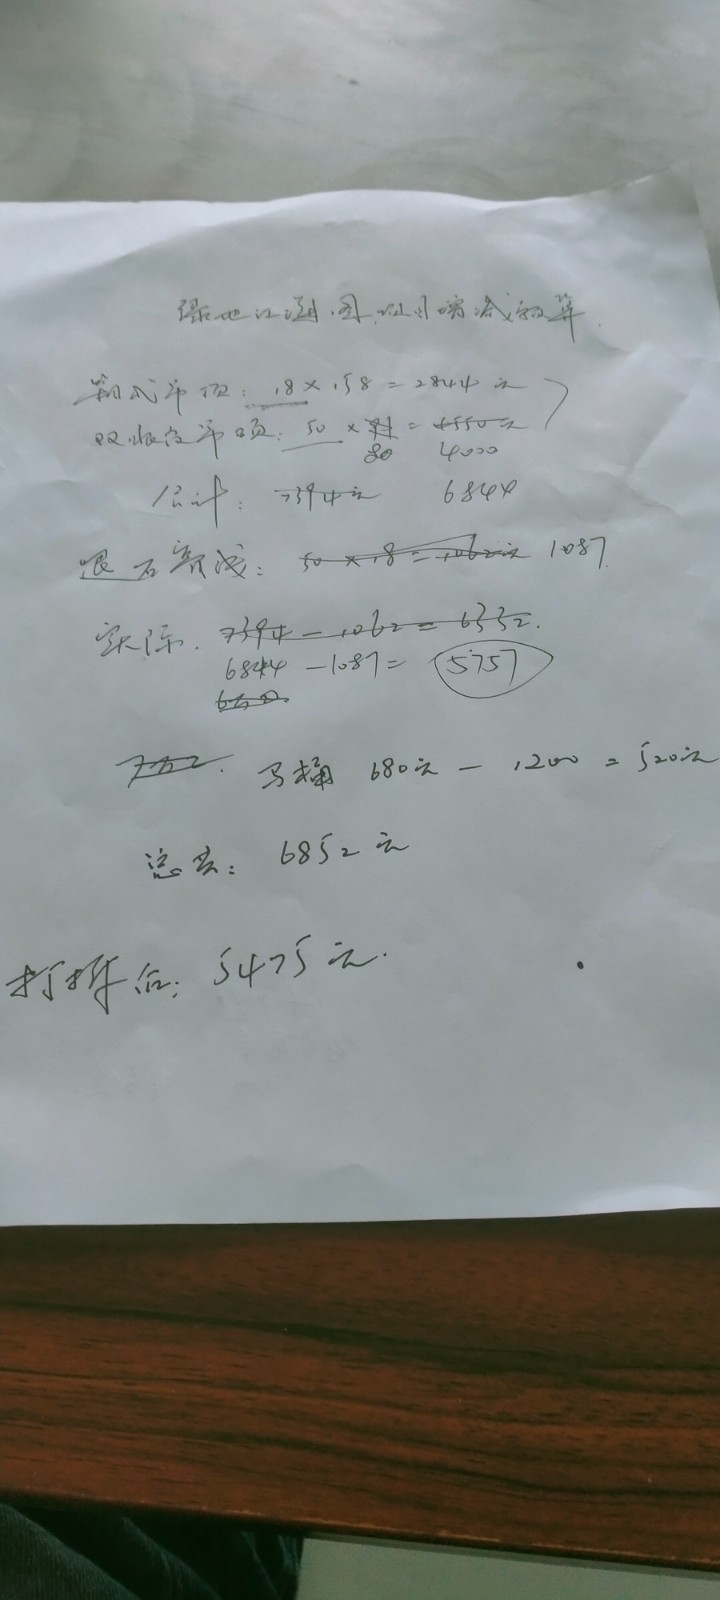 绿地江 图 项目增减预算
吊顶: 18 × 158 = 2844 元
双 吊顶: 50 × = 4550元
80 4000
合计: 7394元 6844
退石膏线: 50 × 18 = 1062元 1087
实际. 7394 - 1062 = 6332.
6844 - 1087 = 5757
马桶 680元 - 1200 = 520元
总共: 6852元
打折后: 5475元.